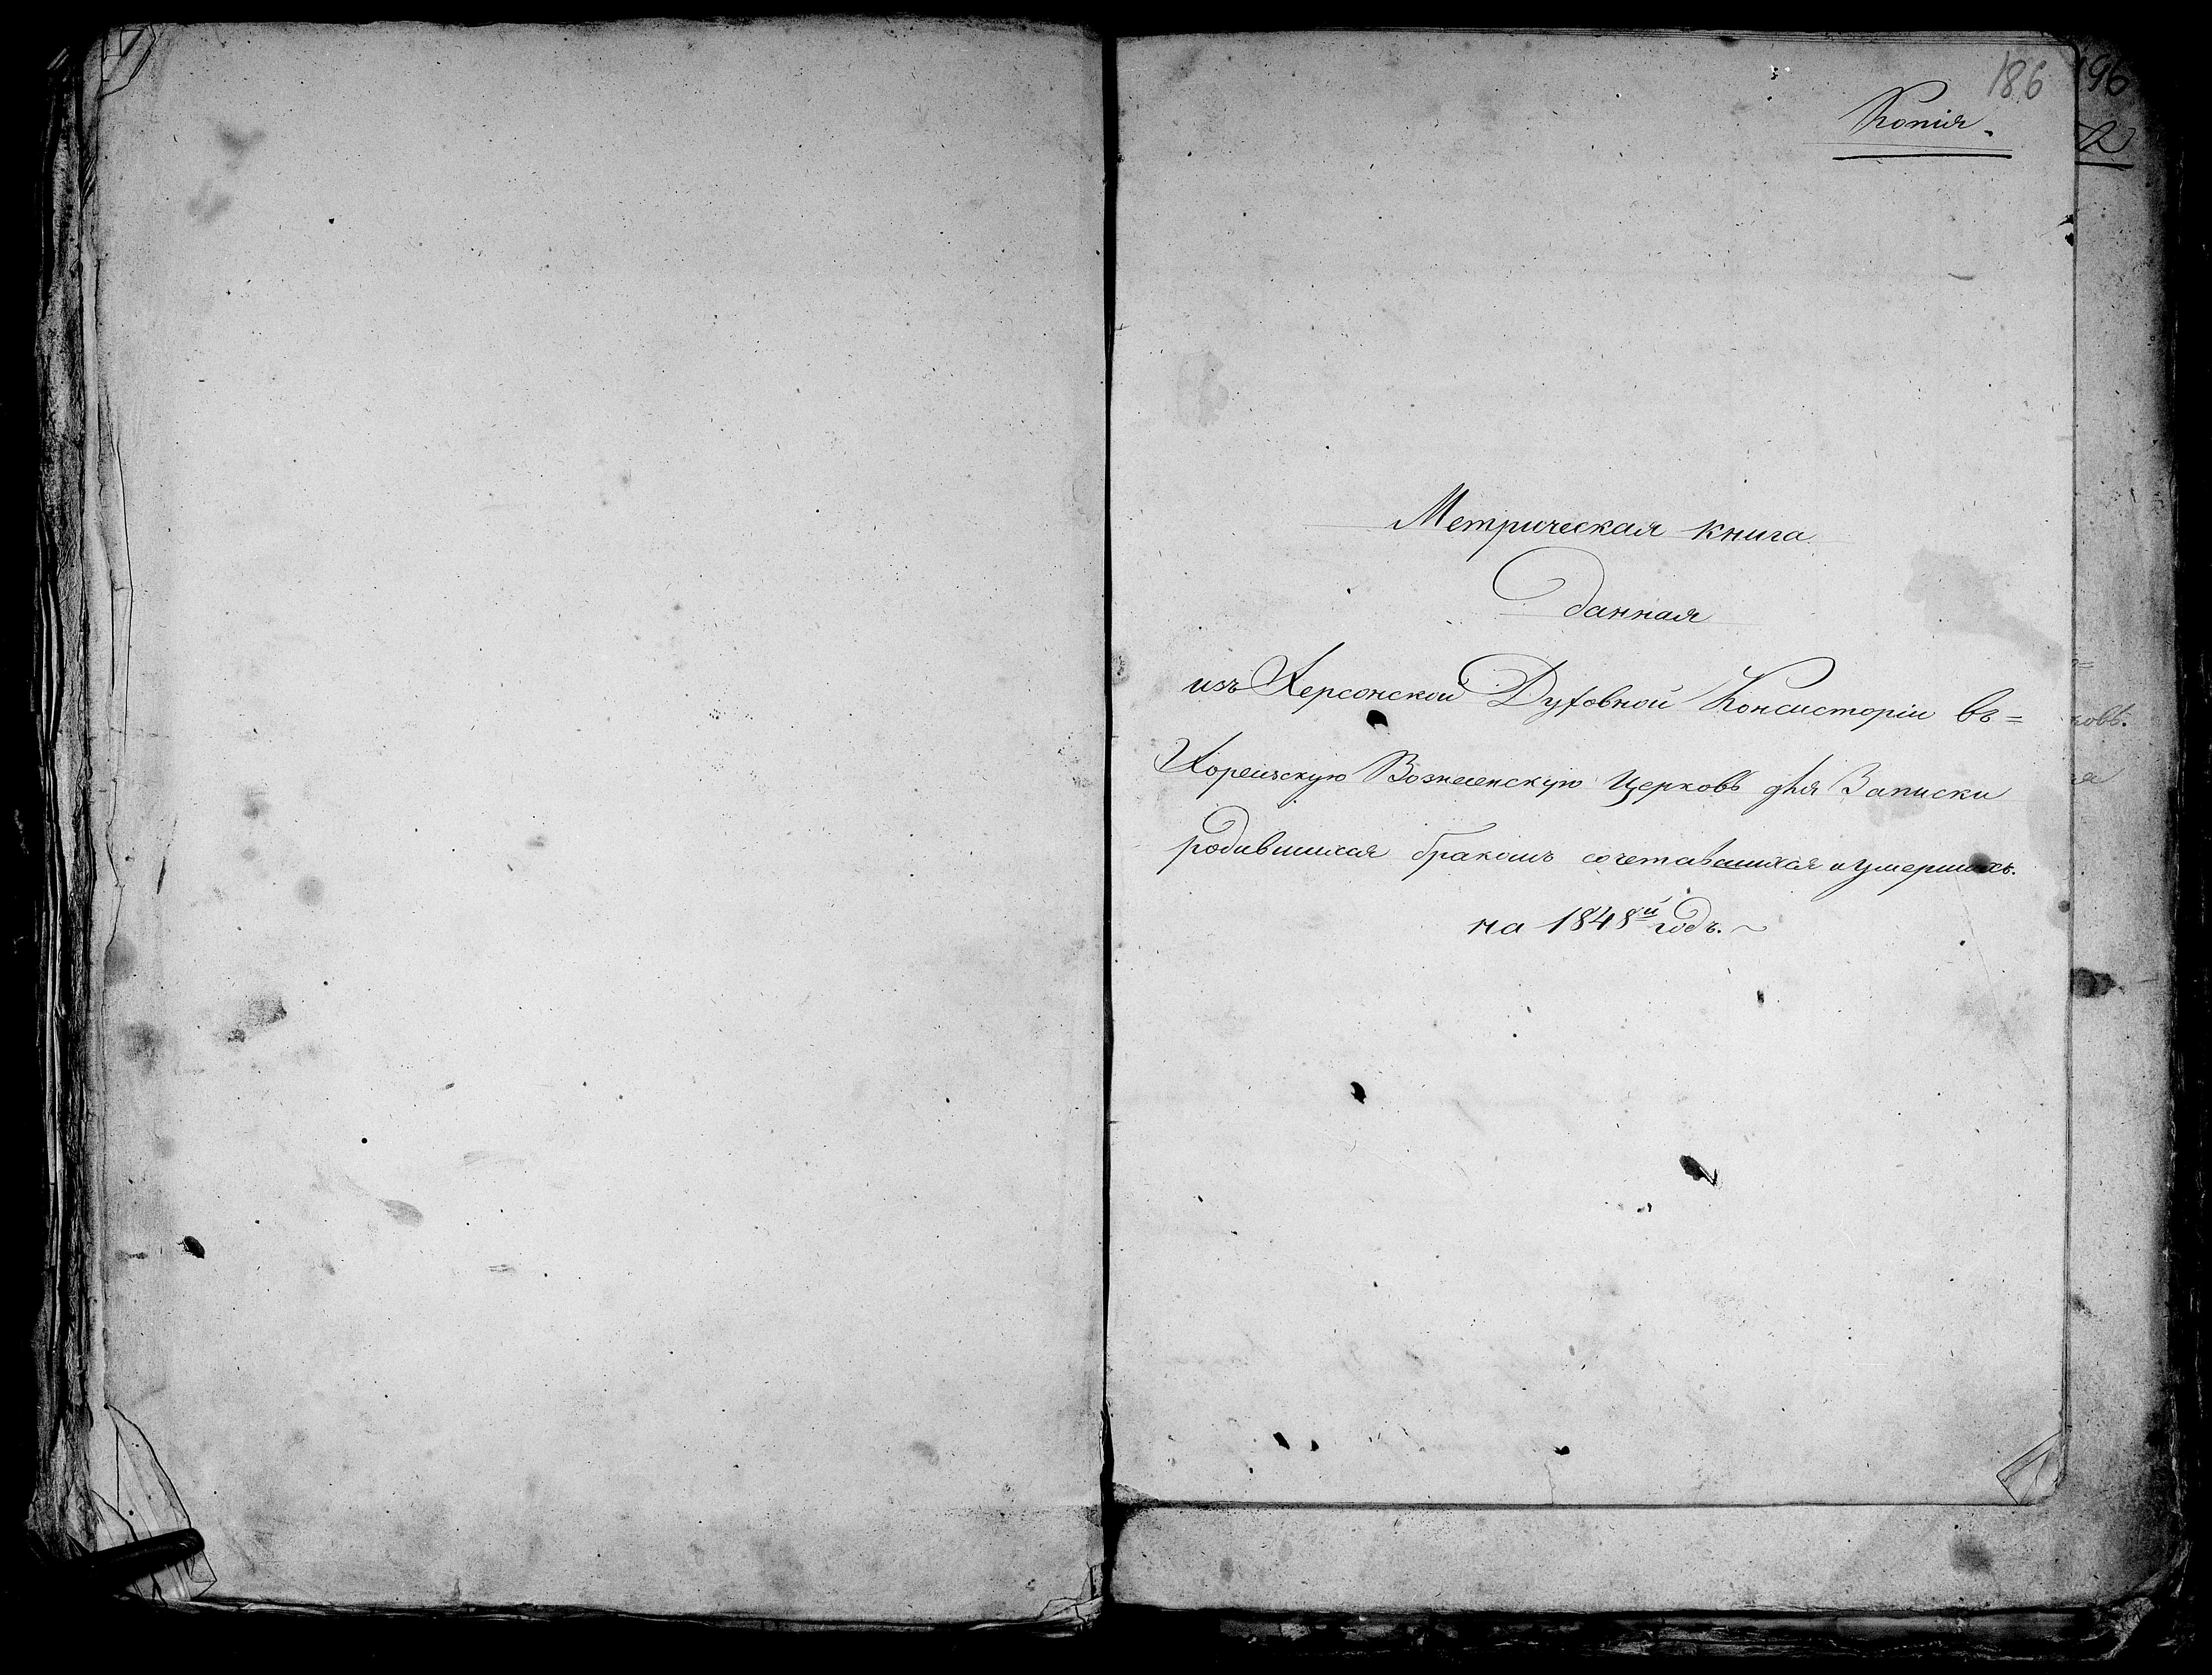 186
196
Копія.
Метрическая книга
данная
изъ Херсонской Духовной Консисторіи въ=
Кореизскую Вознесенскую Церковь для Записки
родившихся бракомъ сочетавшихся и умершихъ.
на 1848й годъ. ~